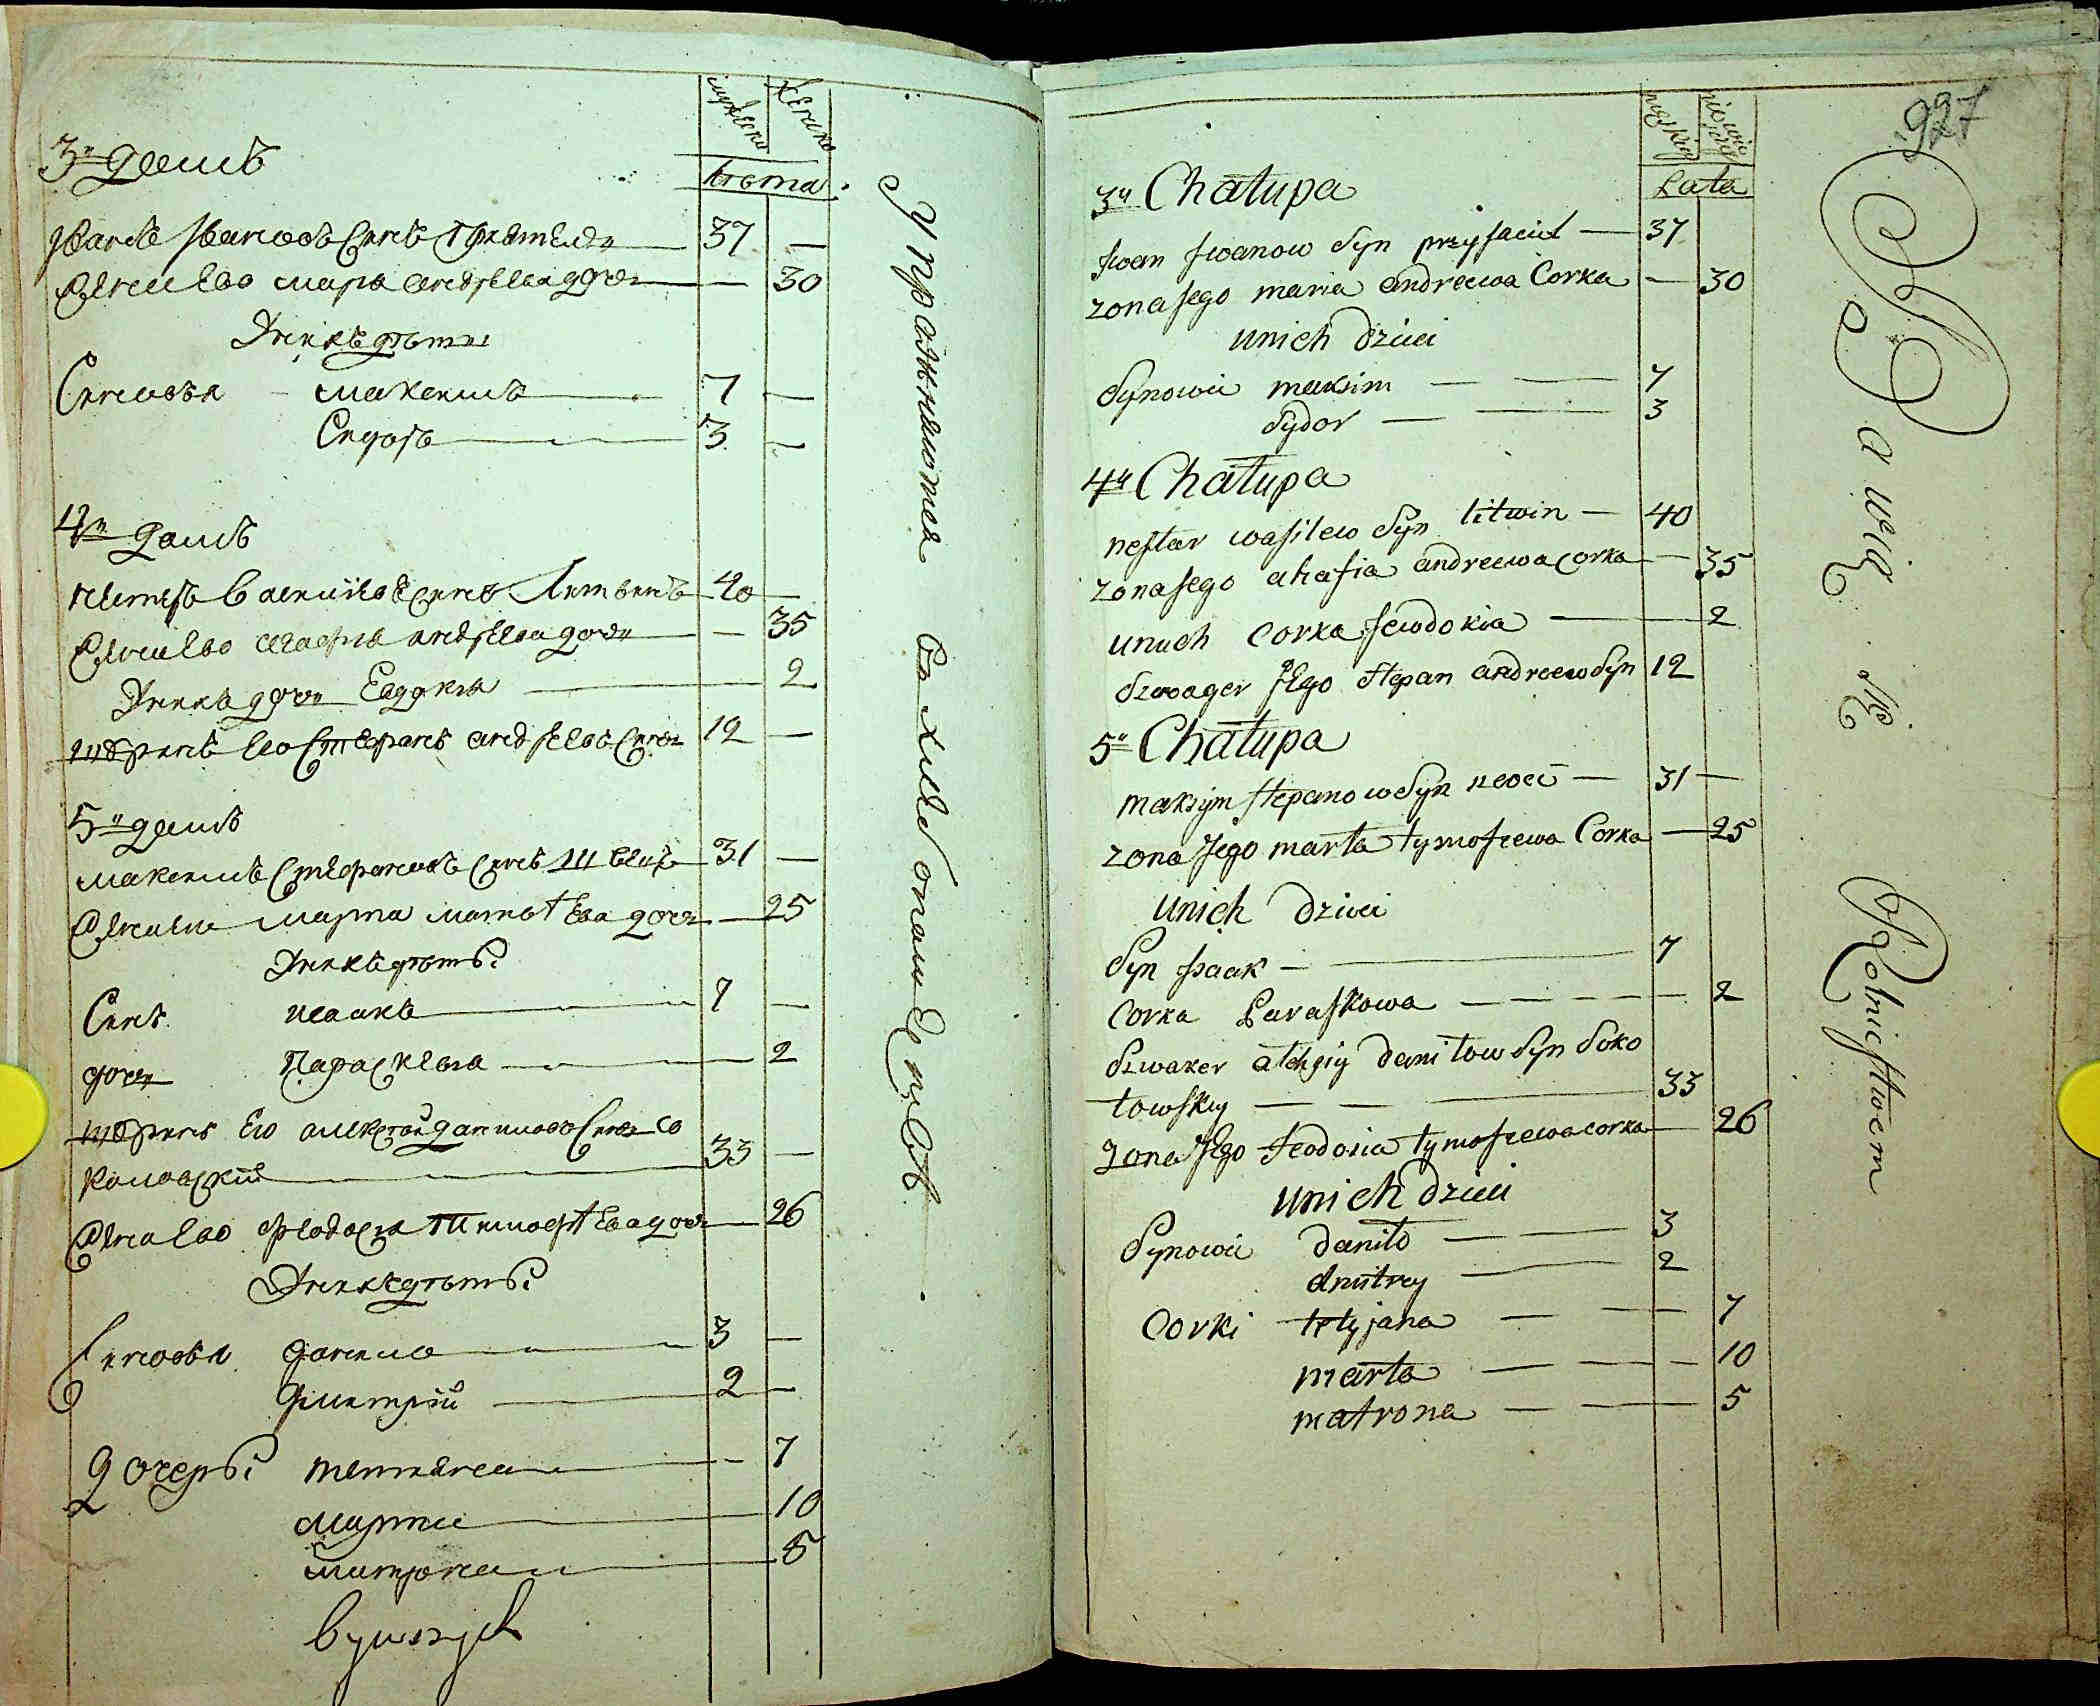 мужеска женска
лѣта
3й домъ
Иванъ Ивановъ синъ 37 —
Жена его марія андреева дочъ — 30
У нихъ дѣти
Синовья максимъ 7 —
Сидоръ 3 —
4й домъ
нестеръ василіевъ синъ Литвинъ 40 —
Жена его агафія андреева дочъ — 35
У нихъ дочъ Евдокія 2
шуринъ его Степанъ андреевъ синъ 12 —
5й домъ
максимъ Степановъ синъ Швецъ 31 —
Жена марта дочъ — 25
У нихъ дѣти
Синъ исаакъ 7 —
дочъ Параскевія 2
шуринъ Его алексѣй даниловъ синъ Со
коловскій 33 —
Жена его феодосія тимофѣева дочъ 26
У нихъ дѣти
Синовья данило 3 —
дмитрій 2 —
дочеры татіяна — 7
марта 10
матрона 5
Упражняются въ хлебопашествѣ
927
męskie niewiescie
Lata
3й Chałupa
Jwan Jwanow Syn przyjaciel — 37
zona Jego maria andreewa Corka — 30
unich dzieci
Synowie maksim — — 7
Sydor — — 3
4й Chałupa
nestar wasilew Syn litwin — 40
zona Jego ahafia andreewa corka — 35
unich corka Jewdokia — 2
Szwager Jego Stepan andreew Syn 12
5й Chałupa
maksym Stepanow Syn — 31 —
zona Jego marta tymofiewa Corka — 25
unich dzieci
Syn Jsaak — 7
Corka Paraskowa — — — — 2
Szwaker Danilow Syn Soko
lowsky — — 33
zona Jego feodosia tymofiewa corka — 26
unich dzieci
Synowie daniło — — 3
dmitrey — 2
Corki tetyjana — — — 7
marta — — — 10
matrona — — — 5
Bawią się Rolnictwem